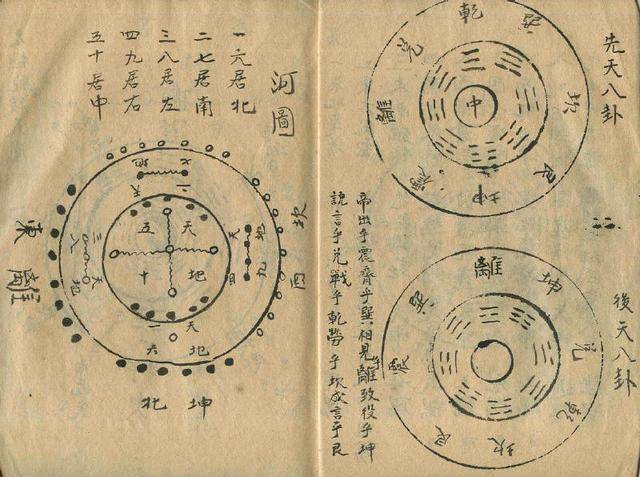 先天八卦
乾
巽
坎
艮
坤
震
離
兌
中
後天八卦
離
坤
兌
乾
坎
艮
震
巽
帝出乎震齊乎巽相見乎離致役乎坤
說言乎兌戰乎乾勞乎坎成言乎艮
河圖
一六居北
二七居南
三八居左
四九居右
五十居中
地七
二天
天地
五十
地九
天四
天三
地八
天一
地六
坎西
東離
坤北